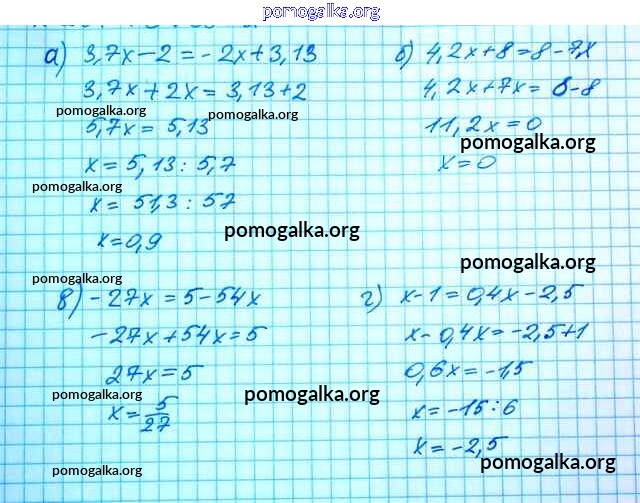 pomogalka.org
а) 3,7x-2=-2x+3,13
3,7x+2x=3,13+2
pomogalka.org pomogalka.org
5,7x=5,13
x=5,13:5,7
pomogalka.org
x=51,3:57
x=0,9
pomogalka.org
б) 4,2x+8=8-7x
4,2x+7x=8-8
11,2x=0
pomogalka.org
x=0
pomogalka.org
pomogalka.org
в) -27x=5-54x
-27x+54x=5
27x=5
pomogalka.org pomogalka.org
x=5/27
pomogalka.org
г) x-1=0,4x-2,5
x-0,4x=-2,5+1
0,6x=-1,5
x=-15:6
x=-2,5
pomogalka.org